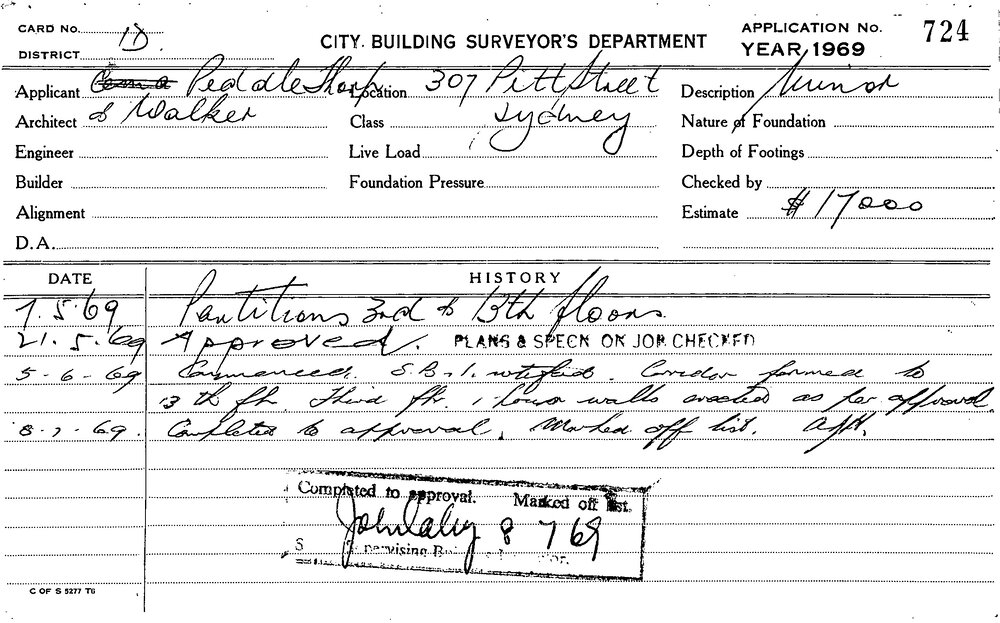 CARD No. 1D
APPLICATION No. 724
DISTRICT
CITY BUILDING SURVEYOR'S DEPARTMENT
YEAR, 1969
Applicant Peddle Thorp Location 307 Pitt Street Description Minor
Architect & Walker Class Sydney Nature of Foundation
Engineer Live Load Depth of Footings
Builder Foundation Pressure Checked by
Alignment Estimate $17000
D.A.
DATE HISTORY
7.5.69 Partitions 3rd & 13th floors.
21.5.69 Approved. PLANS & SPECN ON JOB CHECKED
5-6-69 Commenced. S.B.I. notified. Corridor formed to
13th flr. Third flr. 1 hour walls erected as per approval.
8-7-69. Completed to approval, Marked off list.
Completed to approval. Marked off list.
John Daly 8 7 69
C OF S 5277 T6